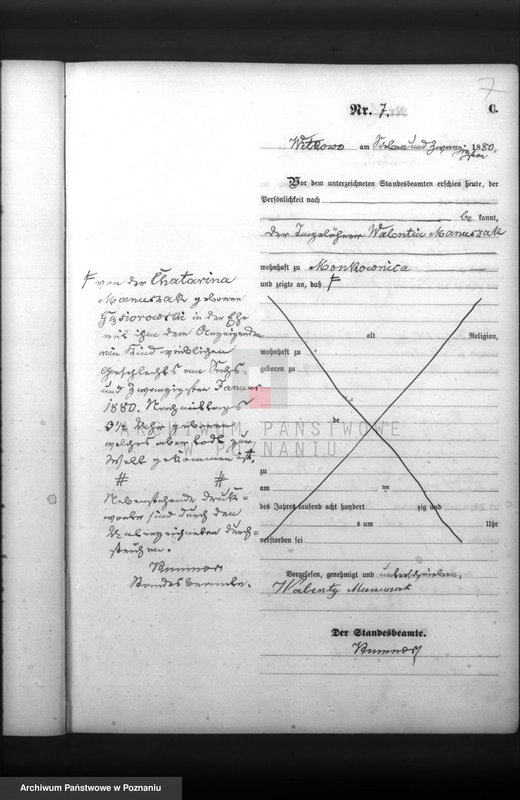 7
Nr. 7. C.
Witkowo am Sieben und Zwanzigsten 1880.
Vor dem unterzeichneten Standesbeamten erschien heute, der
Persönlichkeit nach
be kannt,
der Tagelöhner Walentin Manuszak
wohnhaft zu Monkownica
und zeigte an, daß F
F von der Chatarina
Manuszak geborene
Gąsiorowski in der Ehe
mit ihm dem Anzeigenden
ein Kind weiblichen
Geschlechts am Sechs-
und Zwanzigsten Januar
1880. Nachmittags
3½ Uhr geboren
welches aber todt zur
Welt gekommen ist.
# #
Nebenstehende Druck-
worte sind durch den
Unterzeichneten durch-
strichen.
Standesbeamte.
alt Religion,
wohnhaft zu
geboren zu
de
ARCHIWUM PAŃSTWOWE
W POZNANIU
zu
am ten
des Jahres tausend acht hundert zig und
s um Uhr
verstorben sei
Vorgelesen, genehmigt und unterschrieben,
Walenty Manuszak
Der Standesbeamte.
Archiwum Państwowe w Poznaniu